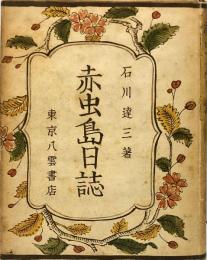 石川達三著
赤虫島日誌
東京八雲書店